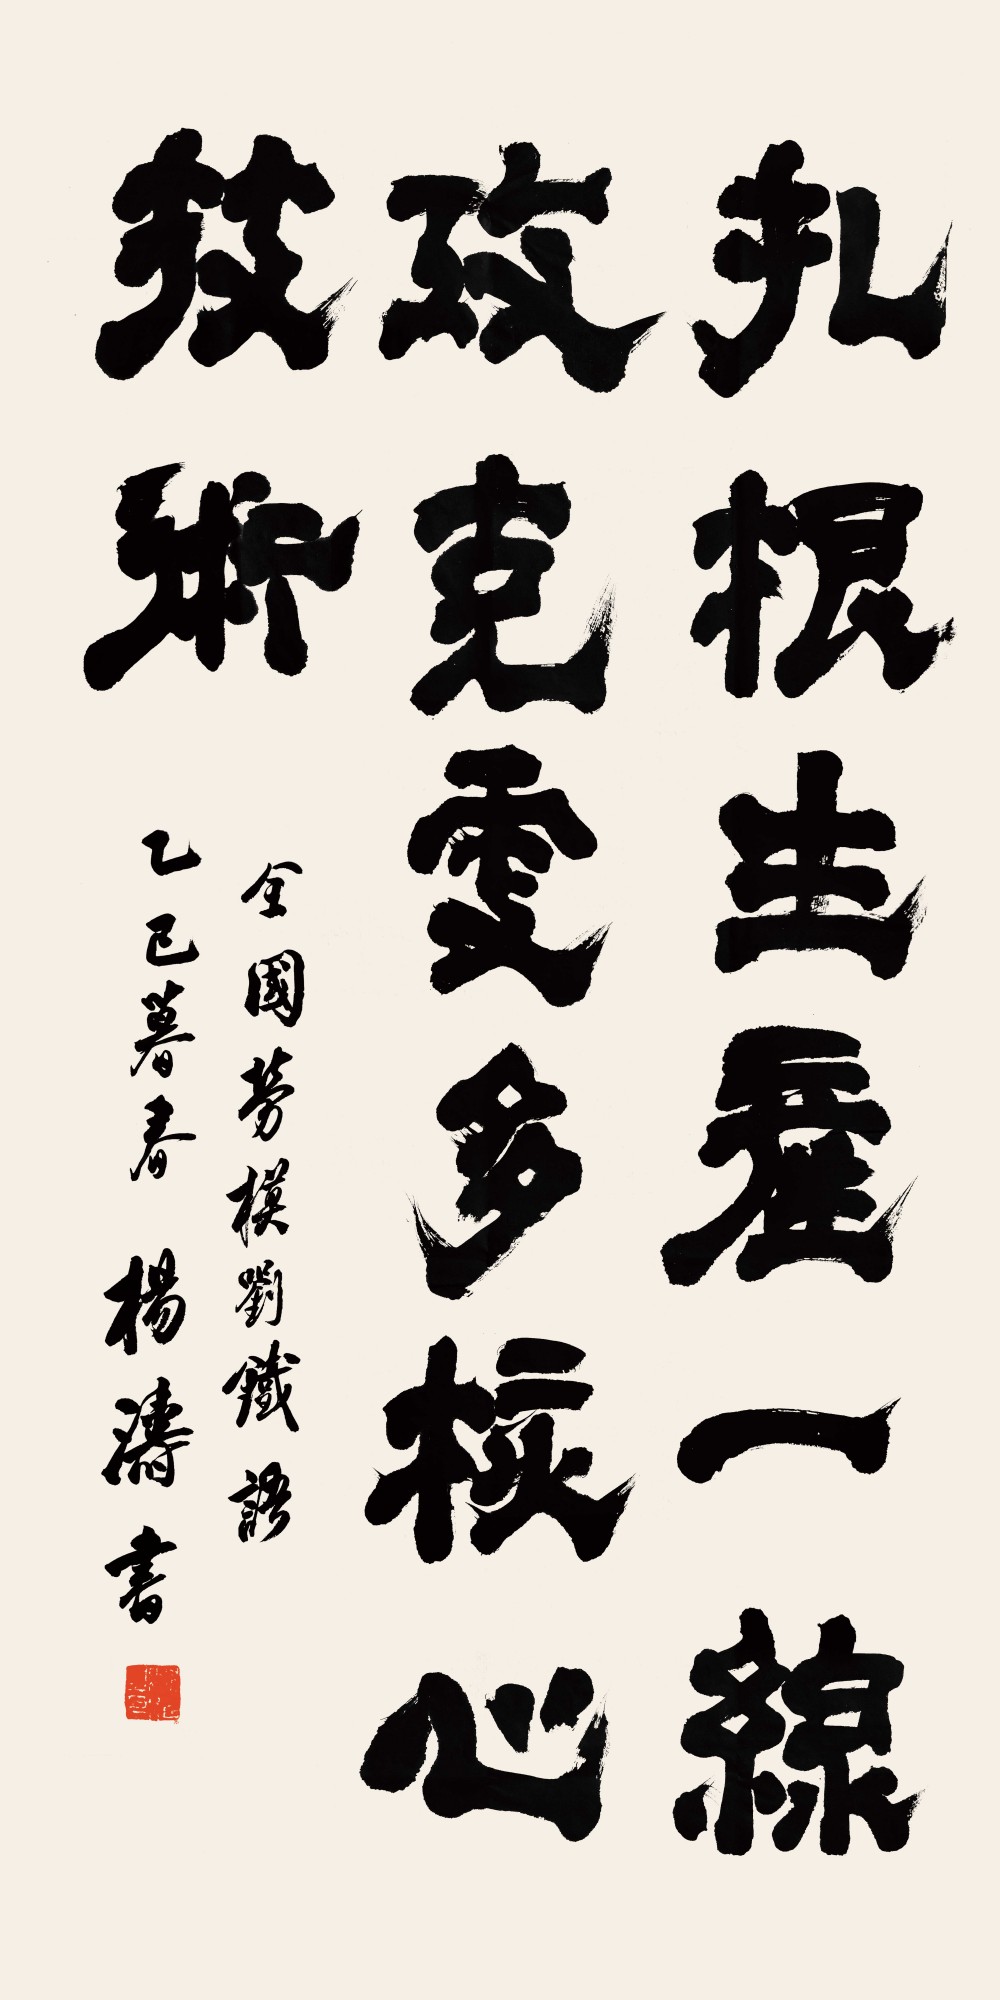 扎根生產一線
攻克更多核心
技術
全國勞模劉鐵語
乙巳暮春 楊濤書